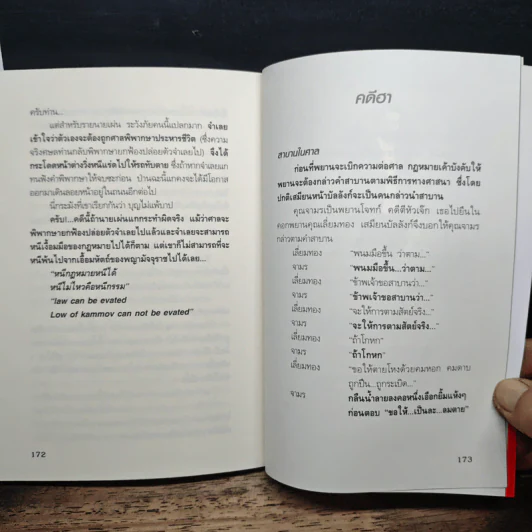 ครับท่าน...
แต่สำหรับรายนายเผ่น ระวังภัยคนนี้แปลกมาก จำเลย
เข้าใจว่าตัวเองจะต้องถูกศาลพิพากษาประหารชีวิต (ซึ่งความ
จริงศษลท่านกลับพิพากษายกฟ้องปล่อยตัวจำเลยไป) จึงได้
กระโดดหน้าต่างวิ่งหนีแข่ดไปให้รถทับตาย ซึ่งถ้าหากจำเลยแก
ทนฟังคำพิพากษาให้จบซะก่อน ป่านฉะนี้แกคงจะได้มีโอกาส
ออกมาเดินลอยหน้าอยู่ในถนนอีกต่อไป
นี่กระมังที่เขาเรียกกันว่า บุญไม่แพ้บาป
ครับ!...คดีนี้ถ้านายเผ่นแกกระทำผิดจริง แม้ว่าศาลจะ
พิพากษายกฟ้องปล่อยตัวจำเลยไปแล้วและจำเลยจะสามารถ
หนีเงื้อมมือของกฎหมายไปได้ก็ตาม แต่เขาก็ไม่สามารถที่จะ
หนีพ้นไปจากเอื้อมหัตถ์ของพญามัจจุราชไปได้เลย...
"หนีกฎหมายหนีได้
หนีไม่ไหวคือหนีกรรม"
"law can be evated
Low of kammov can not be evated"
172
คดีฮา
สาบานในศาล
ก่อนที่พยานจะเบิกความต่อศาล กฎหมายเค้าบังคับให้
พยานจะต้องกล่าวคำสาบานตามพิธีการทางศาสนา ซึ่งโดย
ปกติเสมียนหน้าบัลลังก์จะเป็นคนกล่าวนำสาบาน
คุณจามรเป็นพยานโจทก์ คดีตีหัวเจ๊ก เธอไปยืนใน
คอกพยานคุณเลี่ยมทอง เสมียนบัลลังก์จึงบอกให้คุณจามร
กล่าวตามคำสาบาน
เลี่ยมทอง "พนมมือขึ้น ว่าตาม..."
จามร "พนมมือขึ้น...ว่าตาม..."
เลี่ยมทอง "ข้าพเจ้าขอสาบานว่า..."
จามร "ข้าพเจ้าขอสาบานว่า..."
เลี่ยมทอง "จะให้การตามสัตย์จริง..."
จามร "จะให้การตามสัตย์จริง..."
เลี่ยมทอง "ถ้าโกหก"
จามร "ถ้าโกหก"
เลี่ยมทอง "ขอให้ตายโหงด้วยคมหอก คมดาบ
ถูกปืน...ถูกระเบิด..."
จามร กลืนน้ำลายลงคอหนึ่งเฮือกยิ้มแห้งๆ
ก่อนตอบ "ขอให้...เป็นละ...ลมตาย"
173